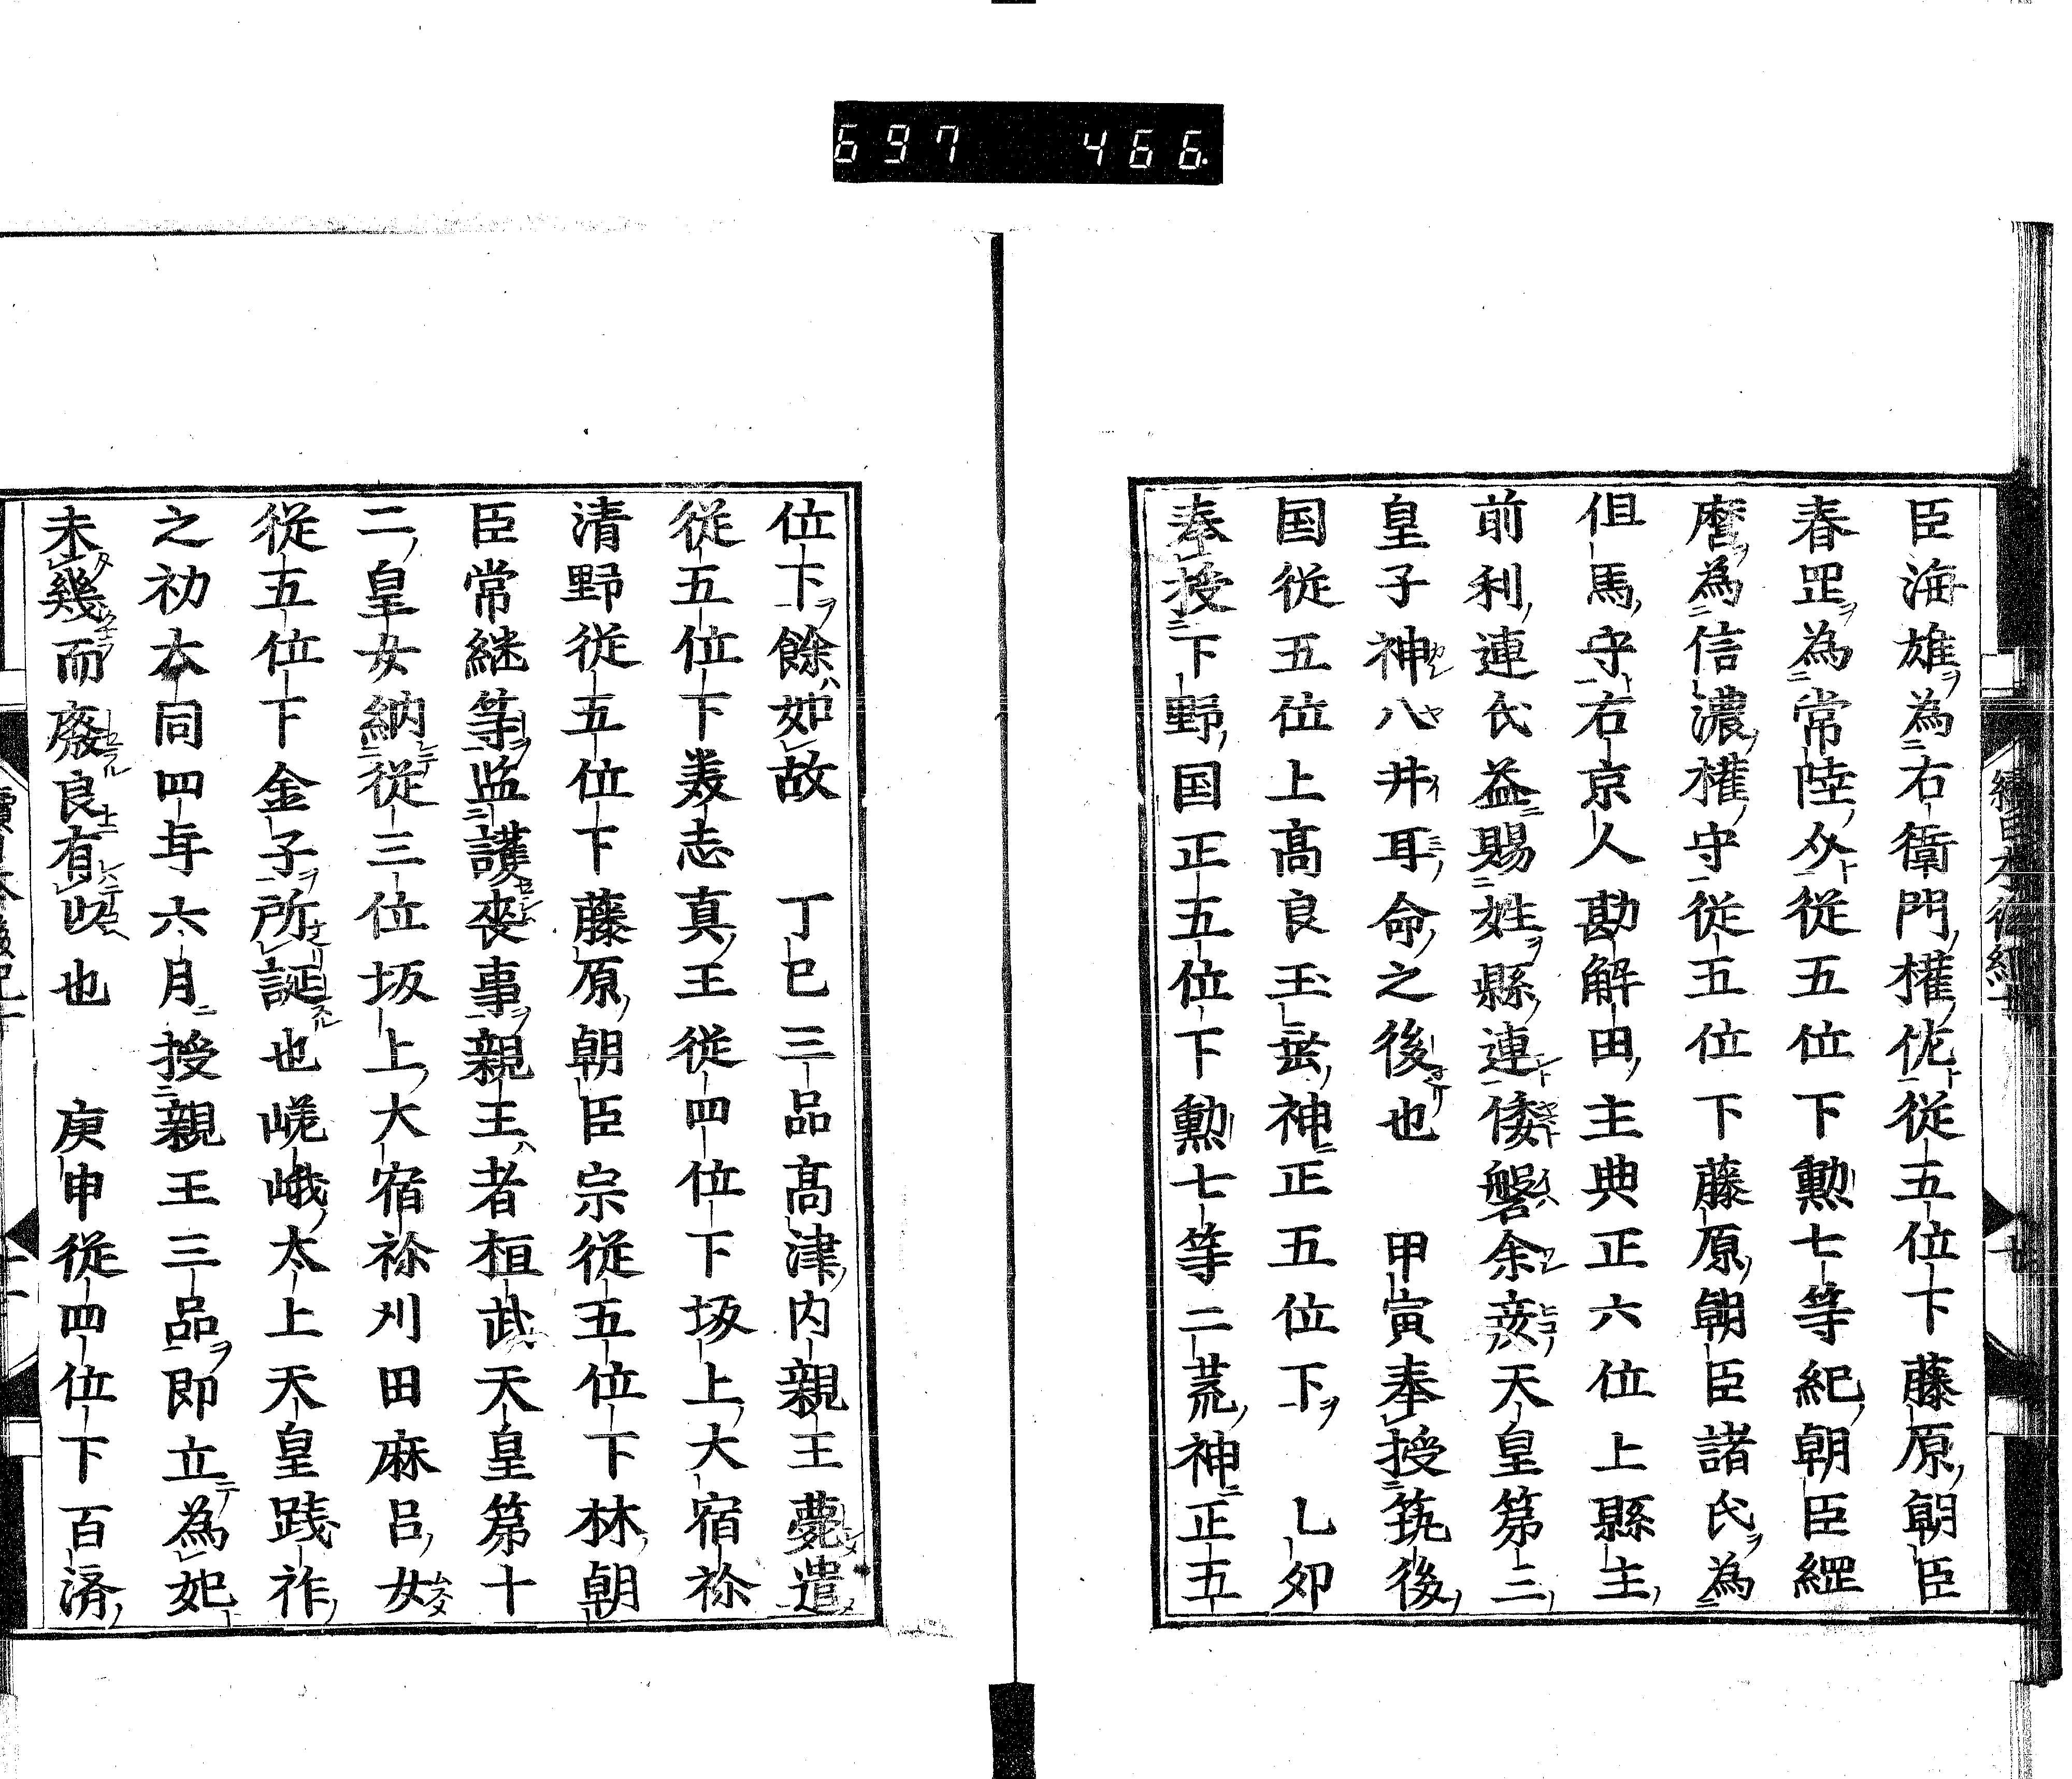 697 466.
臣海雄為右衛門権佐従五位下藤原朝臣
春岡為常陸介従五位下勲七等紀朝臣綱
麿為信濃権守従五位下藤原朝臣諸氏為
但馬守右京人勘解田主典正六位上縣主
前利連氏益賜姓縣連倭磐余彦天皇第三
皇子神八井耳命之後也　甲寅奉授筑後
国従五位上高良玉垂神正五位下　乙卯
奉授下野国正五位下勲七等二荒神正五
位下餘如故　丁巳三品高津内親王薨遣
従五位下美志真王従四位下坂上大宿祢
清野従五位下藤原朝臣宗従五位下林朝
臣常継等監護喪事親王者桓武天皇第十
二皇女納従三位坂上大宿祢刈田麻呂女
従五位下金子所誕也嵯峨太上天皇践祚
之初大同四年六月授親王三品即立為妃
未幾而廃良有以也　庚申従四位下百済